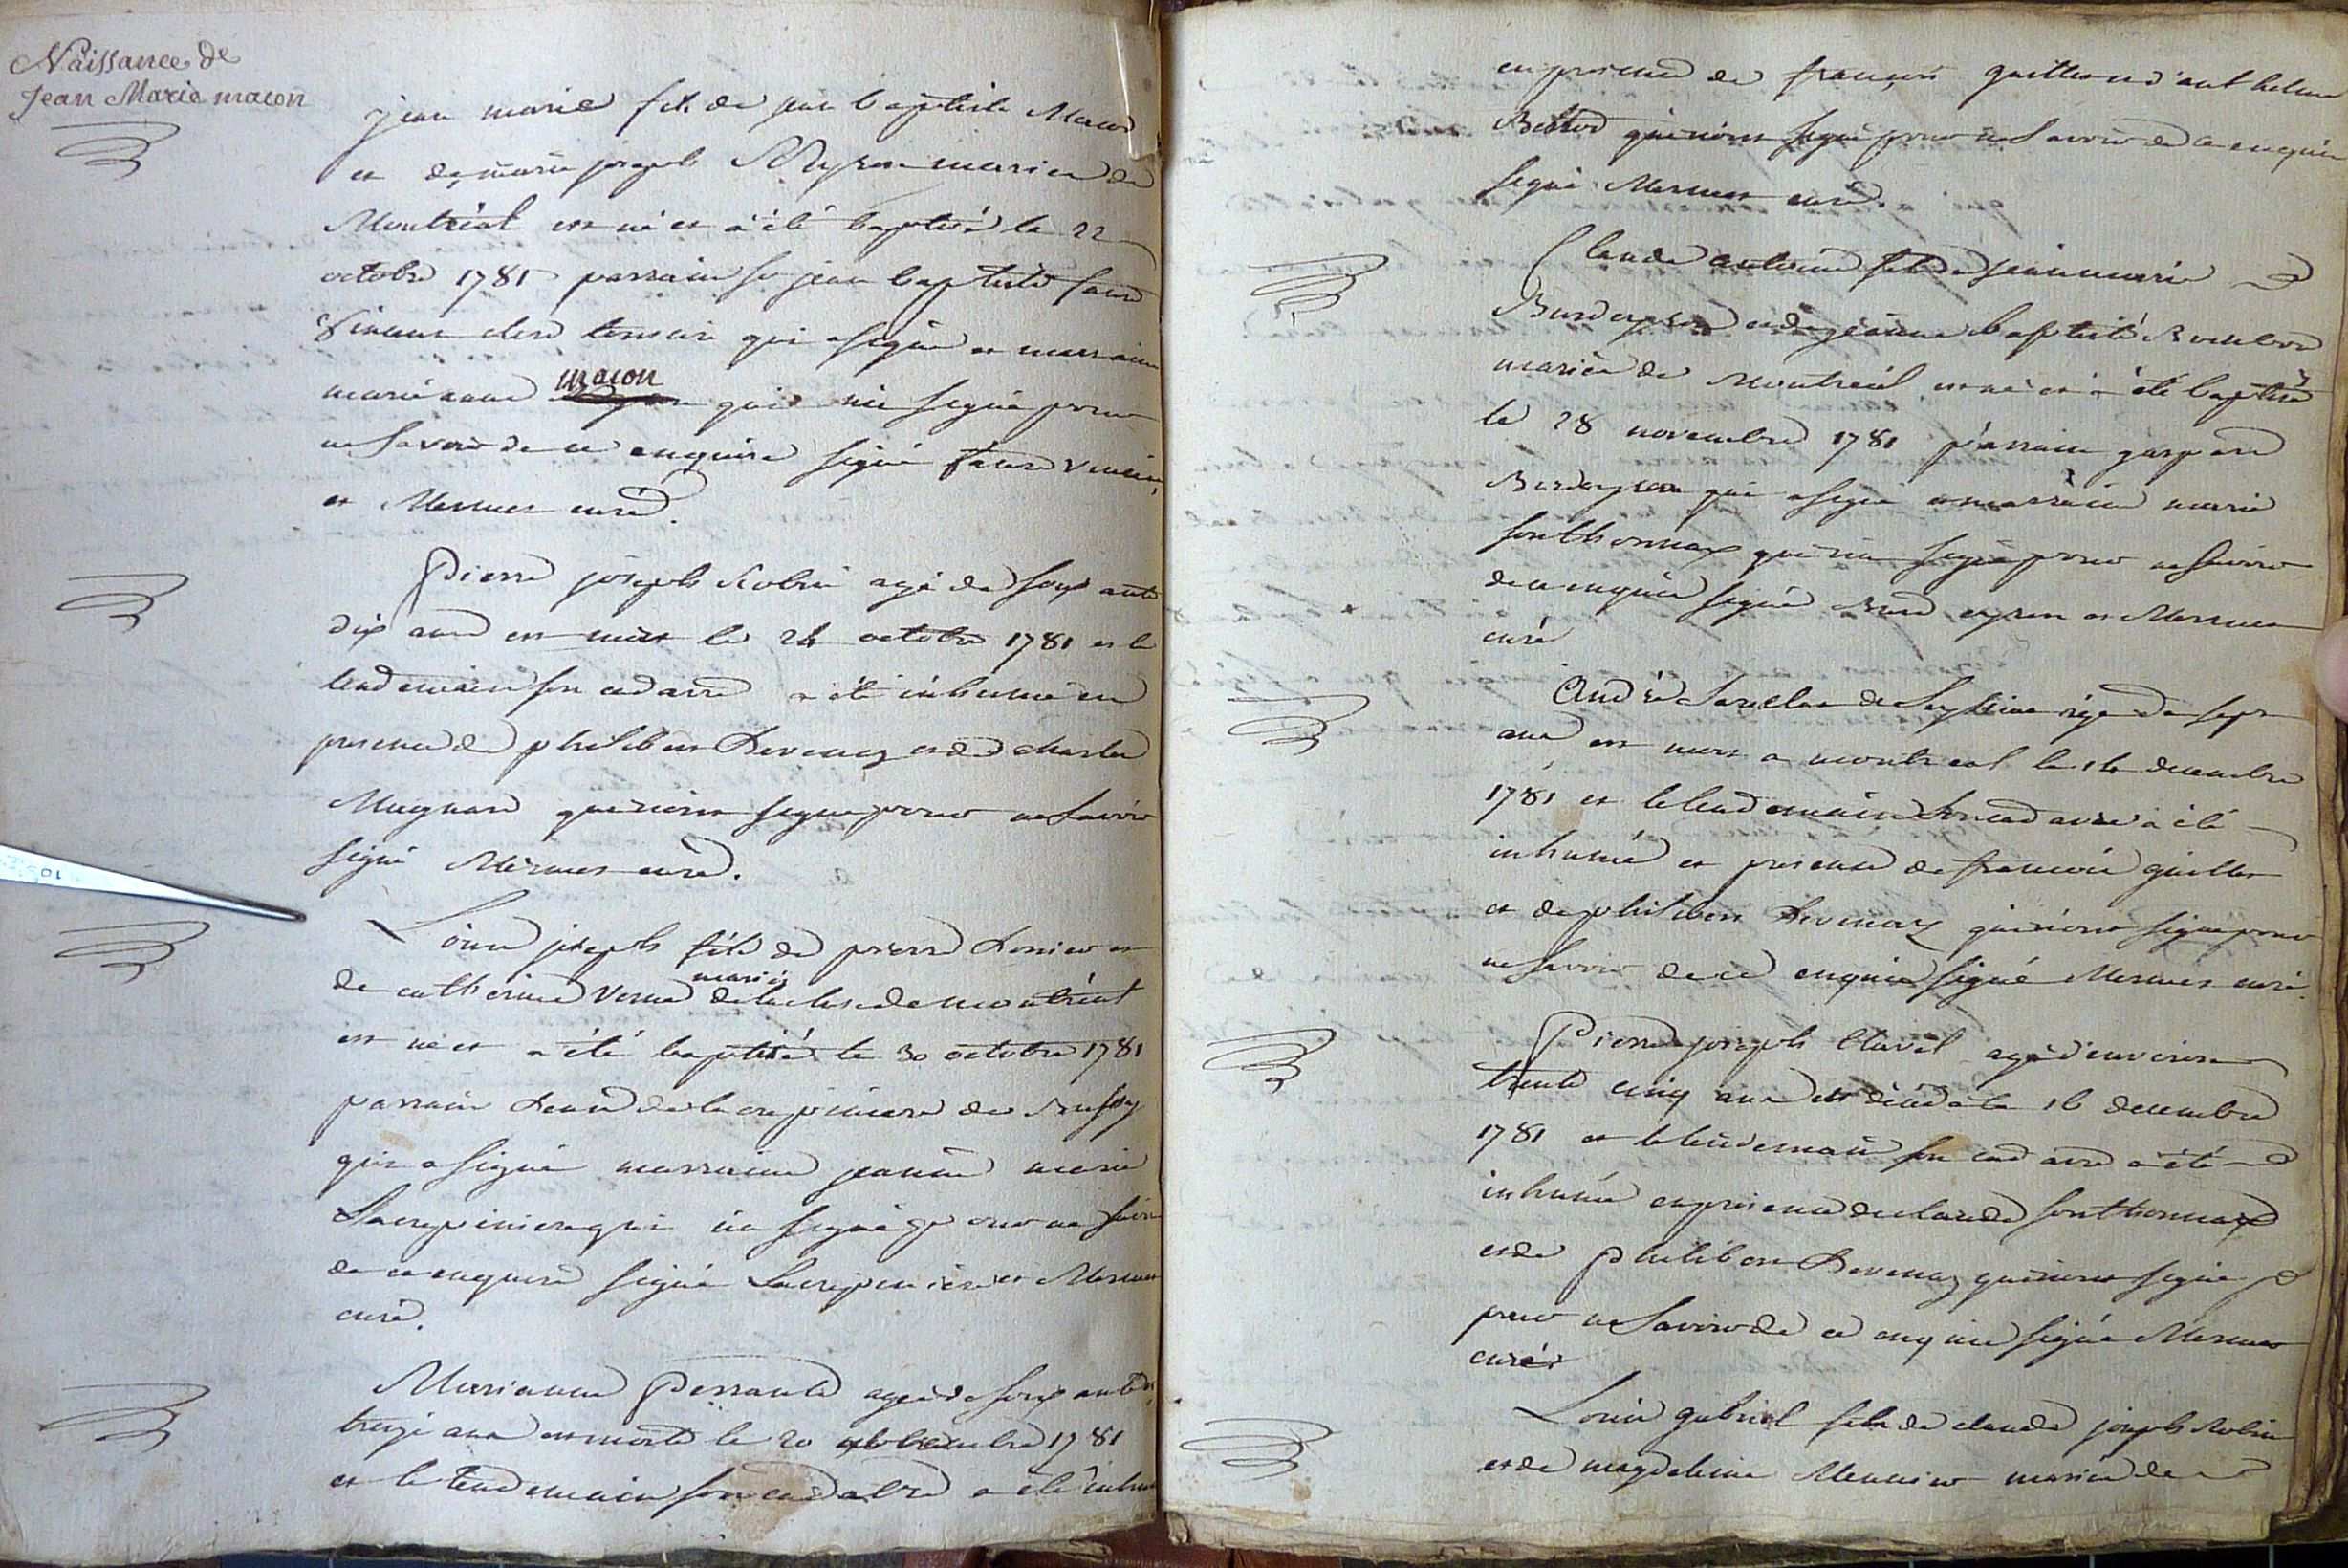 Naissance de
Jean Marie macon
jean marie fils de jean baptiste Macon
et de marie joseph mariés de
Montréal est né et a été baptisé le 22
octobre 1781 parrain sr jean baptiste faure
clerc tonsuré qui a signé et marraine
marie anne macon qui n'a signé pour
ne savoir de ce enquise signé faure
et Mermet curé.
Pierre joseph Robin agé de soixante
dix ans est mort le 24 octobre 1781 et le
lendemain son cadavre a été inhumé en
presence de philibert Devenaz et de charles
Mugnard qui n'ont signé pour ne savoir
signé Mermet curé.
Louis joseph fils de pierre et
de catherine Verne mariés de la cluse de montréal
est né et a été baptisé le 30 octobre 1781
parrain de la crepiniere de
qui a signé marraine jeanne marie
Lacrepiniere qui n'a signé pour ne savoir
de ce enquise signé Lacrepiniere et Mermet
curé.
Marianne Perraud agée de soixante
treize ans est morte le 20 novembre 1781
et le lendemain son cadavre a été inhu
en presence de françois guillet et d'anthelme
qui n'ont signé pour ne savoir de ce enquis
signé Mermet curé.
Claude antoine fils de jean marie
et de jeanne baptiste
mariés de Montréal est né et a été baptisé
le 28 novembre 1781 parrain gaspard
qui a signé et marraine marie
sonthonnax qui n'a signé pour ne savoir
de ce enquise signé et Mermet
curé
André de agé de sept
ans est mort a montreal le 14 decembre
1781 et le lendemain son cadavre a été
inhumé en presence de francois guillet
et de philibert Devenaz qui n'ont signé pour
ne savoir de ce enquis signé Mermet curé.
Pierre joseph agé d'environ
trente cinq ans est décédé le 16 decembre
1781 et le lendemain son cadavre a été
inhumé en presence de claude sonthonnax
et de philibert Devenaz qui n'ont signé
pour ne savoir de ce enquis signé Mermet
curé
Louis gabriel fils de claude joseph Robin
et de magdeleine Meunier mariés de